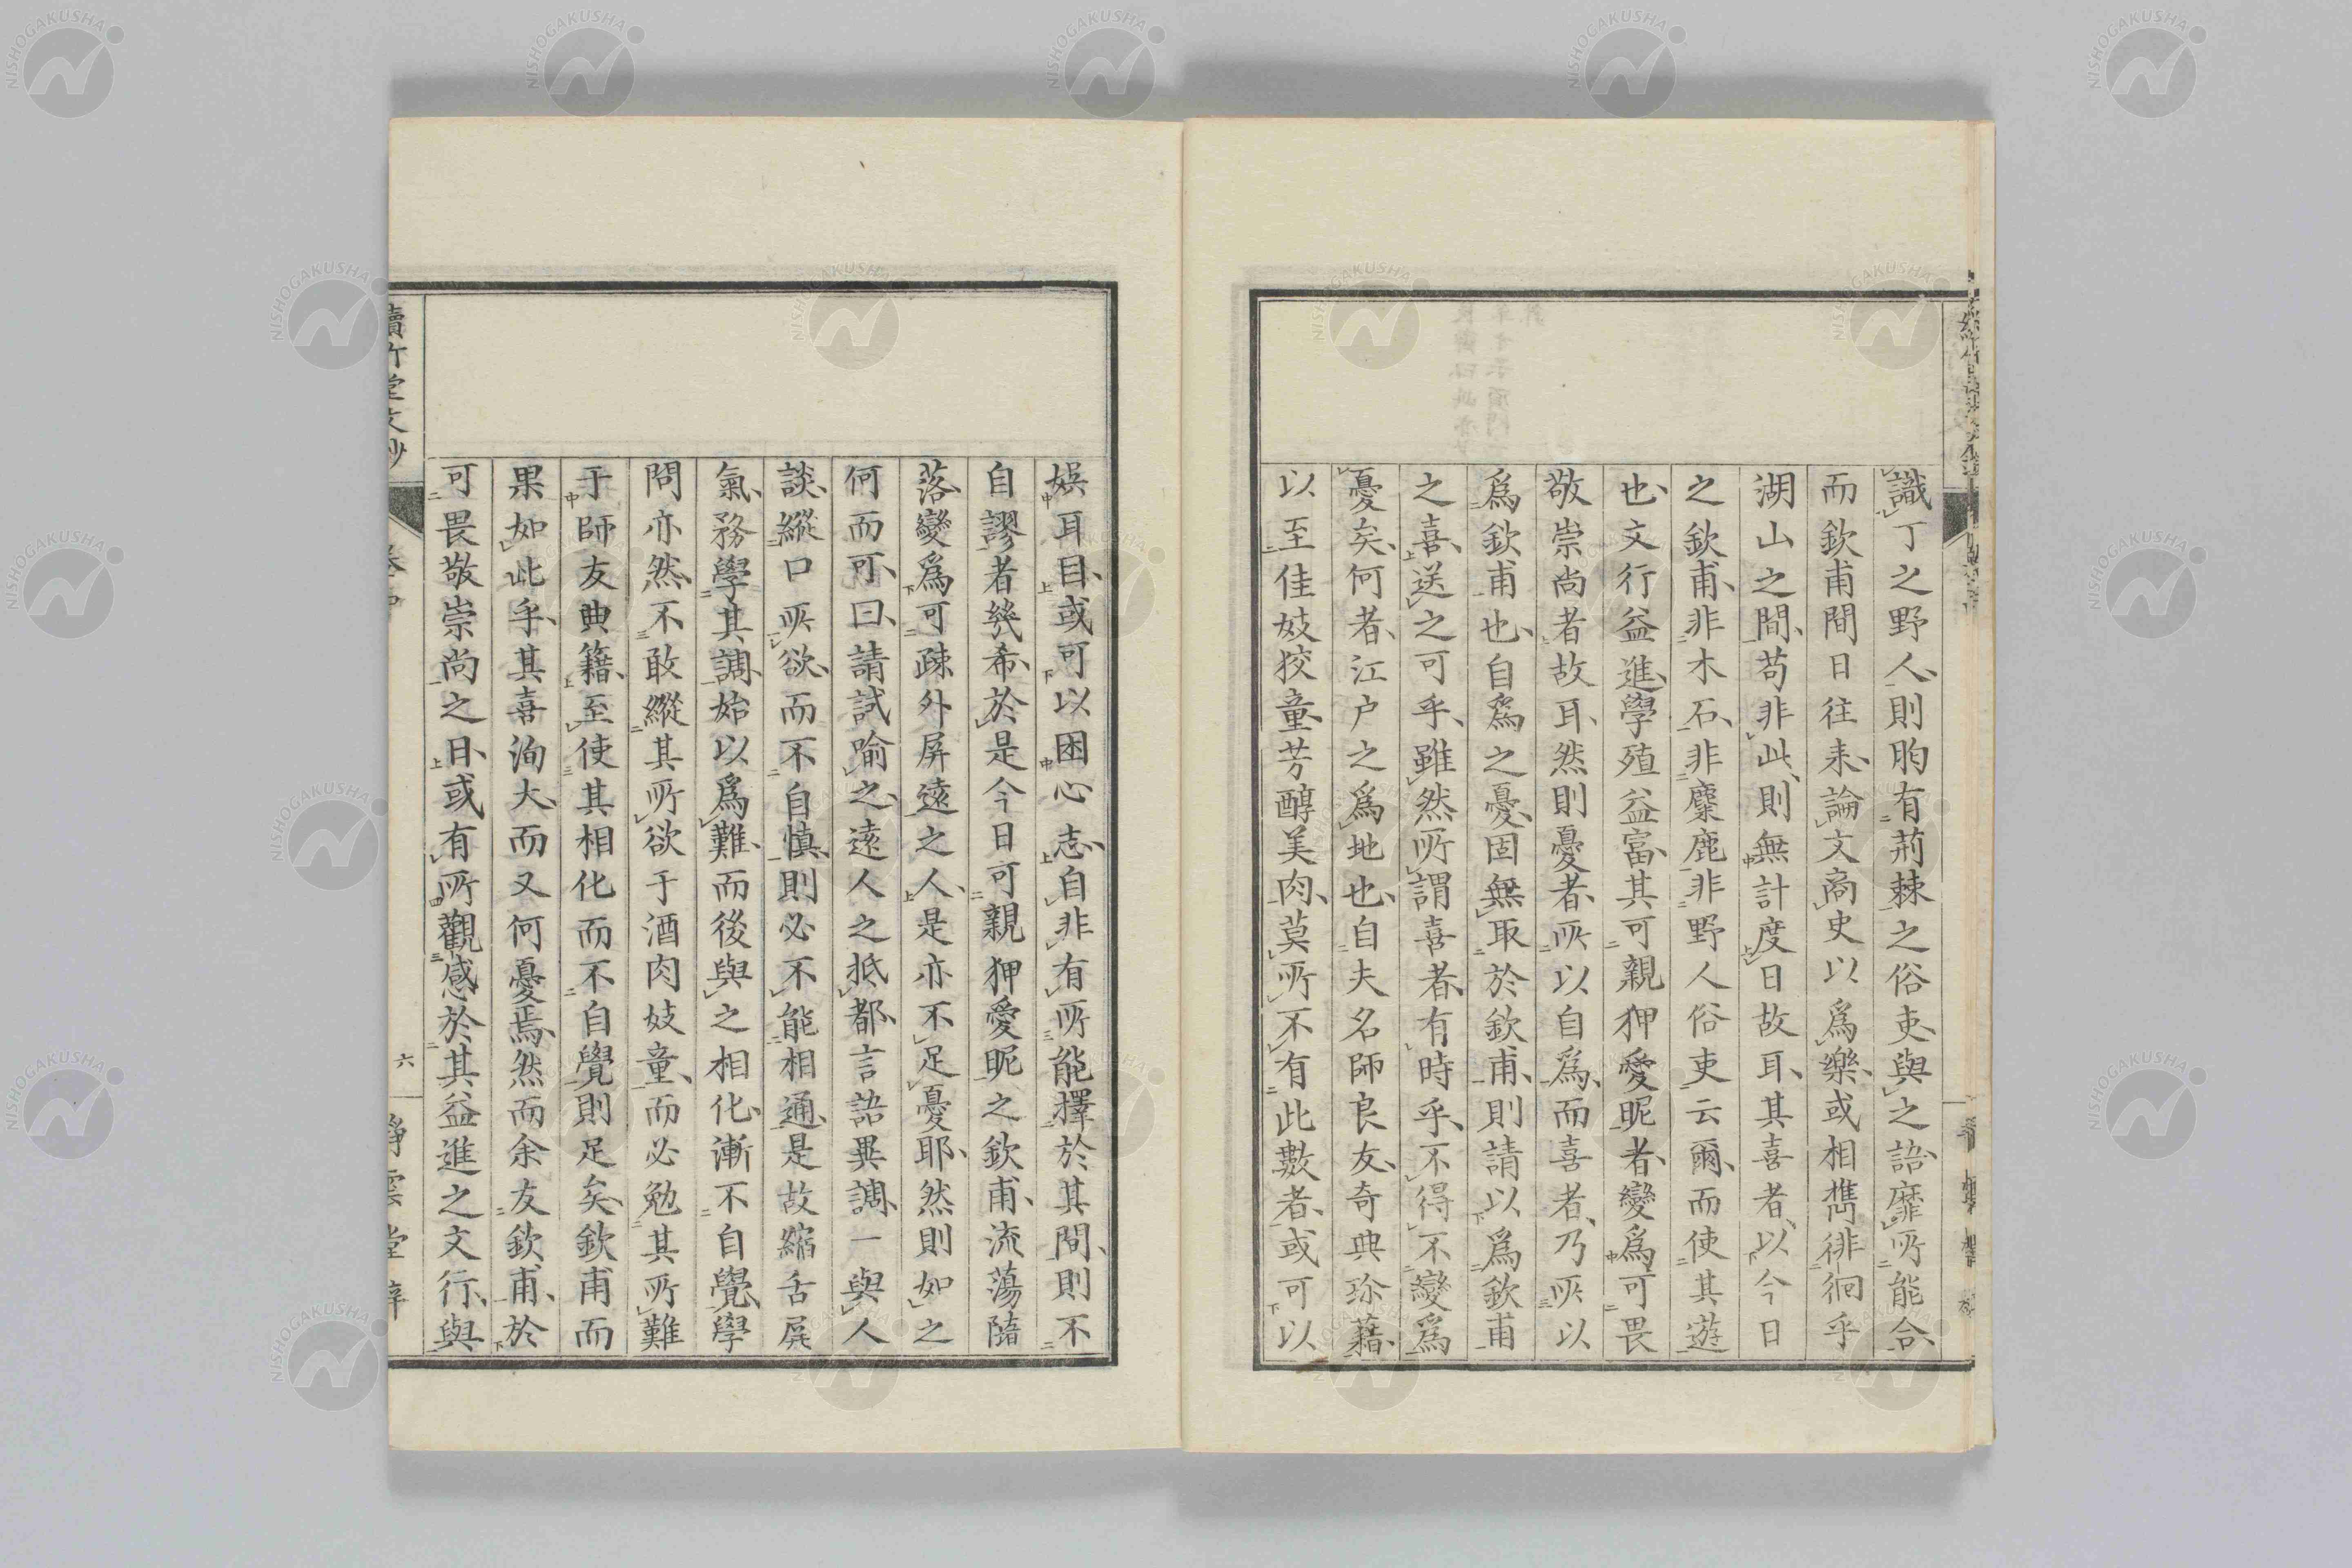 識丁之野人、則胷有荊棘之俗吏、與之語、靡所能合、
而欽甫間日往来、論文商史以為樂、或相携徘徊乎
湖山之間、苟非此、則無計度日故耳、其喜者、以今日
之欽甫、非木石、非麋鹿、非野人俗吏云爾、而使其遊
也、文行益進、學殖益富、其可親狎愛昵者、變為可畏
敬崇尚者故耳、然則憂者、所以自為、而喜者、乃所以
為欽甫也、自為之憂、固無取於欽甫、則請以為欽甫
之喜、送之可乎、雖然所謂喜者、有時乎、不得不變為
憂矣、何者、江户之為地也、自夫名師良友、奇典珍籍、
以至佳妓狡童、芳醇美肉、莫所不有、此數者、或可以
娯耳目、或可以困心志、自非有所能擇於其間、則不
自謬者幾希、於是今日可親狎愛昵之欽甫、流蕩隨
落、變為可疎外屏遠之人、是亦不足憂耶、然則如之
何而可、曰、請試喻之、遠人之抵都、言語異調、一與人
談、縱口所欲、而不自慎、則必不能相通、是故縮舌屏
氣、務學其調、始以為難、而後與之相化、漸不自覺、學
問亦然、不敢縱其所欲于酒肉妓童、而必勉其所難
于師友典籍、至使其相化而不自覺則足矣、欽甫而
果如此乎、其喜洵大、而又何憂焉、然而余友欽甫、於
可畏敬崇尚之日、或有所觀感於其益進之文行、與
讀竹堂文鈔
六